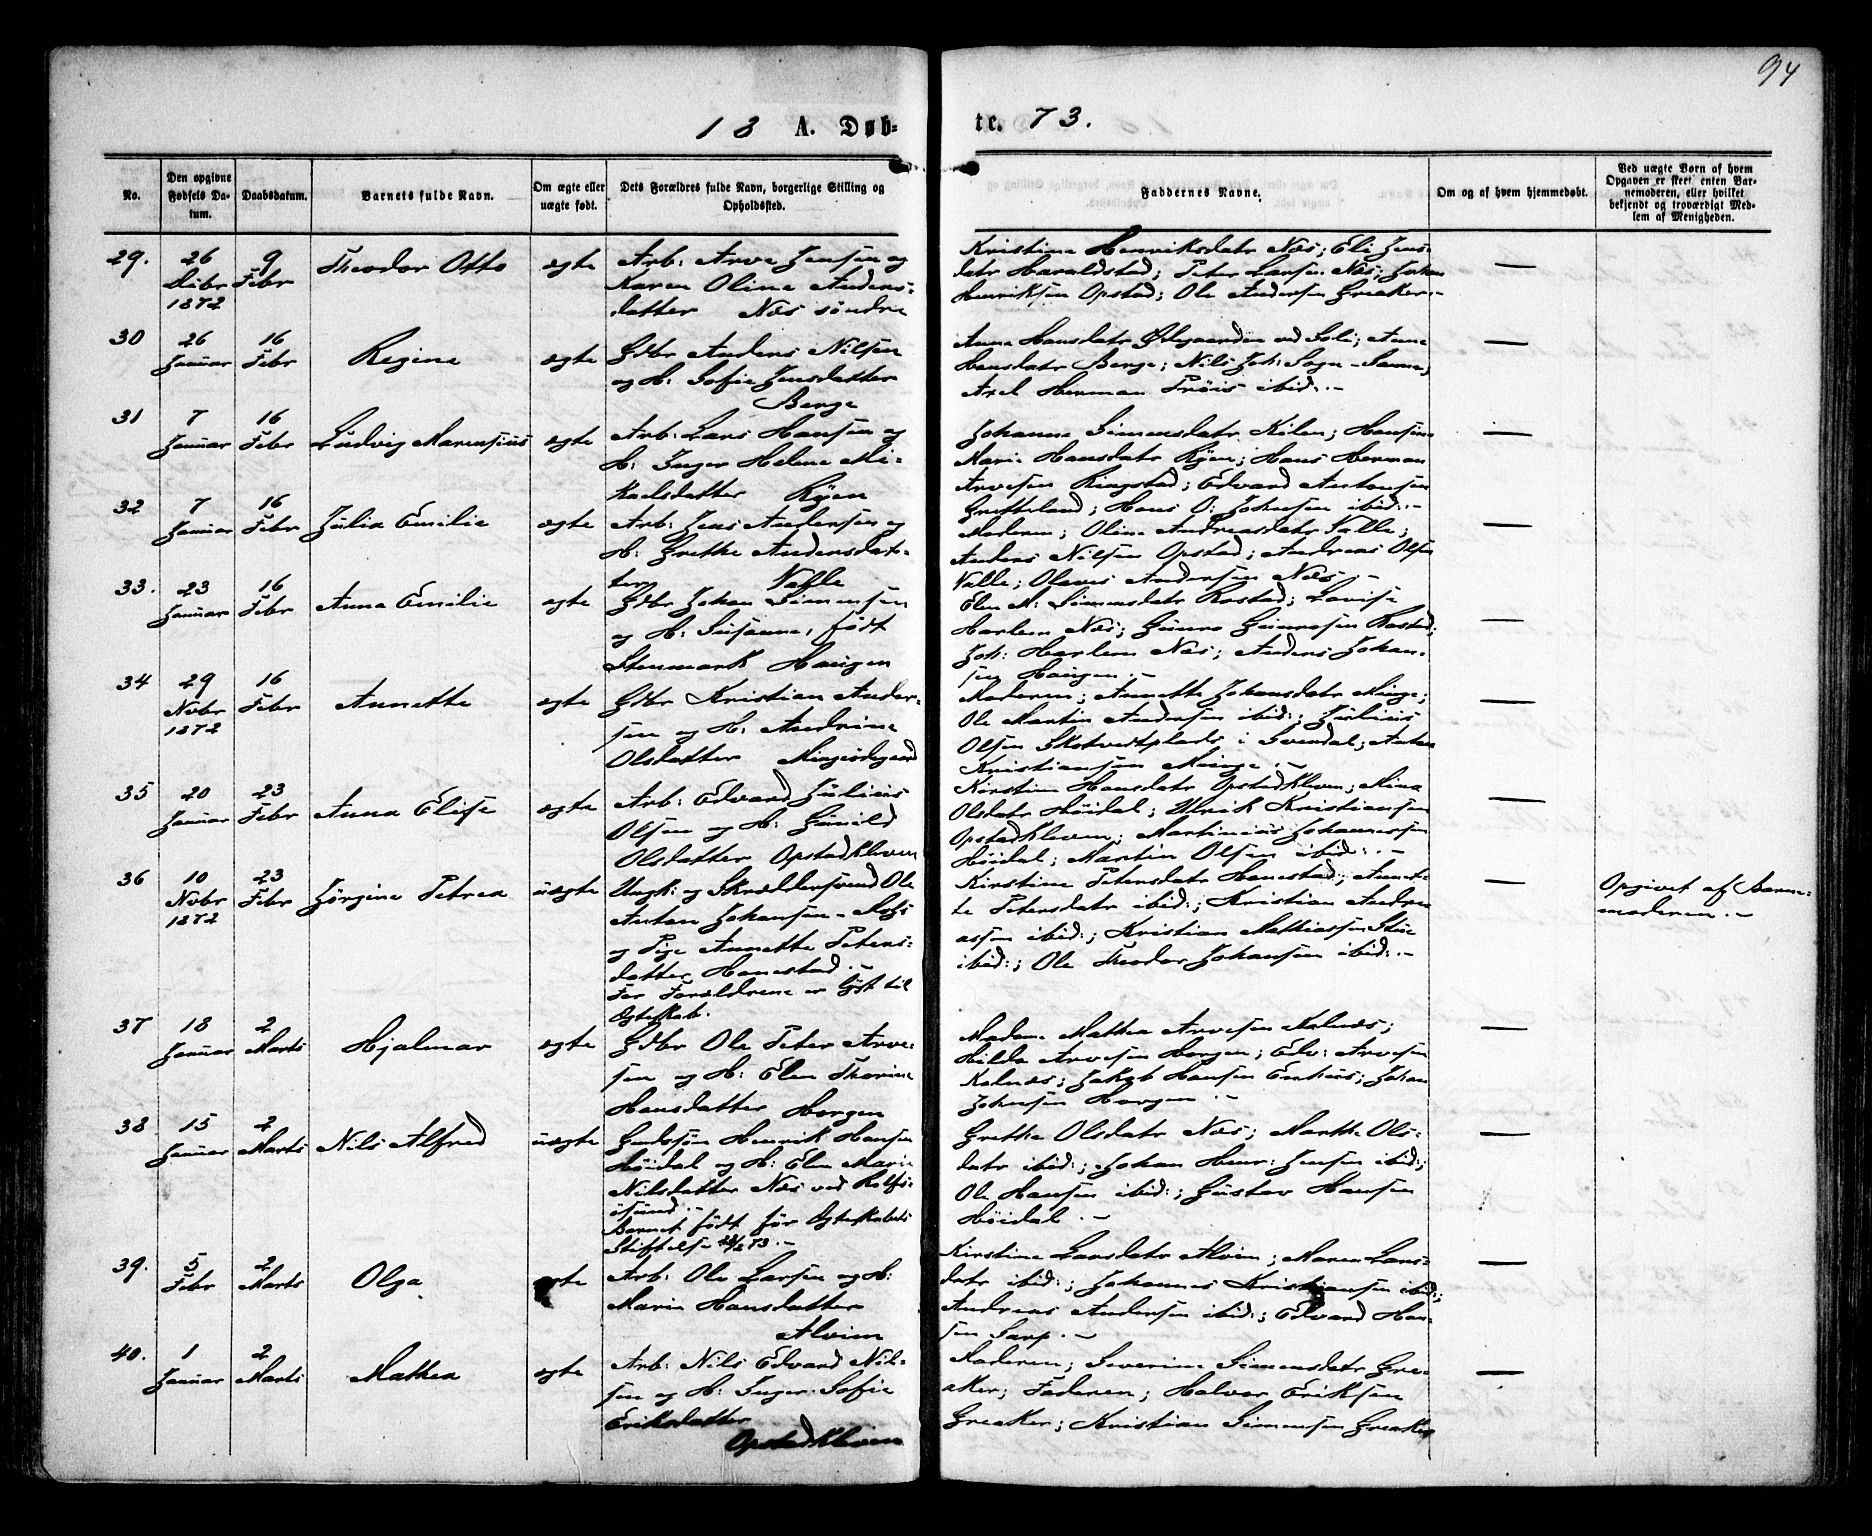 94
18 A. Døb-
te. 73.
No.
Den opgivne Fødsels Da-tum.
Daabsdatum.
Barnets fulde Navn.
Om ægte eller uægte født.
Dets Forældres fulde Navn, borgerlige Stilling og Opholdssted.
Faddernes Navne.
Om og af hvem hjemmedøbt.
Ved uægte Børn af hvem Opgaven er skeet, enten Bar-nemoderen, eller hvilket bekjendt og troværdigt Med-lem af Menigheden.
29. 26 Debr 1872 9 Febr Theodor Otto ægte
Arb: Arve Jensen og
Karen Oline Anders-
datter Næs søndre
Kristine Henriksdatr Næs; Eli Jens-
datr Haraldstad; Peter Larsen Næs; Johan
Henriksen Opstad; Ole Andersen Greaker.-
30 26 Januar 16 Febr Regine ægte
Gdbr Anders Nilsen
og H: Sofie Jensdatter
Berge
Anna Hansdatr Ødegaarden ved Soli; Anne
Hansdatr Berge; Nils Joh: Sogn-Sanne;
Axel Herman Prøis ibid:.-
31 7 Januar 16 Febr Ludvig Marensius ægte
Arb: Lars Hansen og
H: Inger Helene Mi-
kaelsdatter Ryen
Johanne Simensdatr Kilen; Hansine
Marie Hansdatr Ryen; Hans Herman
Arvesen Ringstad; Edvard Antonsen
Gretteland; Hans O: Johnsen ibid:.-
32 7 Januar 16 Febr Julia Emilie ægte
Arb: Jens Andersen og
H: Grethe Andersdat-
ter Valle
Moderen; Oline Andreasdatr Valle;
Anders Nilsen Opstad; Andreas Olsen
Valle; Olaves Andersen Næs.-
33. 23 Januar 16 Febr Anna Emilie ægte
Gdbr Johan Simensen
og H: Susanne, født
Stenmark Haugen
Elen M: Simensdatr Rostad; Lovise
Harlem Næs; Gunro Gunrosen Rostad;
Joh: Harlem Næs; Anders Johan-
sen Haugen.-
34 29 Nobr 1872 16 Febr Annette ægte
Gdbr Kristian Ander-
sen og H: Andrine
Olsdatter Mingeødegaard
Moderen; Annette Johansdatr Minge;
Ole Martin Andersen ibid:; Julius
Olsen Skotvedtplads i Svendal; Anton
Kristiansen Minge.-
35 20 Januar 23 Febr Anna Elise ægte
Arb: Edvard Julius
Olsen og H: Gunild
Olsdatter Opstadkleven
Kirstine Hansdatr Opstadkleven; Mina
Olsdatr Høidal; Ulrik Kristiansen
Opstadkleven; Martinius Johannessen
Høidal; Martin Olsen ibid:.-
36 10 Nobr 1872 23 Febr Jørgine Petrea uægte
Ungk: og Skræddersvend Ole
Anton Johansen
og Pige Annette Peters-
datter Hanestad.-
For Forældrene er lyst til
Ægteskab.
Kirstine Petersdatr Hanestad; Annet-
te Petersdatr ibid:; Kristian Andre-
assen ibid:; Kristian Mathiassen
ibid:; Ole Theodor Johansen ibid:.-
Opgivet af Barne-
moderen.-
37 18 Januar 2 Marts Hjalmar ægte
Gdbr Ole Peter Arve-
sen og H: Elen Thorine
Hansdatter Horgen
Madam Mathea Arvesen Kalnæs;
Hilda Arvesen Horgen; Edv: Arvesen
Kalnæs; Jakob Hansen Enhus; Johan
Johnsen Horgen.-
38 15 Januar 2 Marts Nils Alfred uægte
Gaardsøn Henrik Hansen
Høidal og H: Elen Marie
Nilsdatter Næs ved Rolfs-
øsund.-
Barnet født før Ægteskabets
Stiftelse 28/2 73.-
Grethe Olsdatr Næs; Marthe Ols-
datr ibid:; Johan Henr: Jensen ibid:;
Ole Hansen ibid:; Gustav Hansen
Høidal.-
39. 5 Febr 2 Marts Olga ægte
Arb: Ole Larsen og H:
Marie Hansdatter
Alvim
Kirstine Larsdatr Alvim; Maren Lars-
datr ibid:; Johannes Kristiansen ibid:;
Andreas Andersen ibid:; Edvard Han-
sen Sarp.-
40. 1 Januar 2 Marts Mathea ægte
Arb: Nils Edvard Nil-
sen og H: Inger Sofie
Eriksdatter
Opstadkleven
Moderen; Severine Simensdatr Gre-
aker; Faderen; Halvor Eriksen
Greaker; Kristian Simensen Greaker